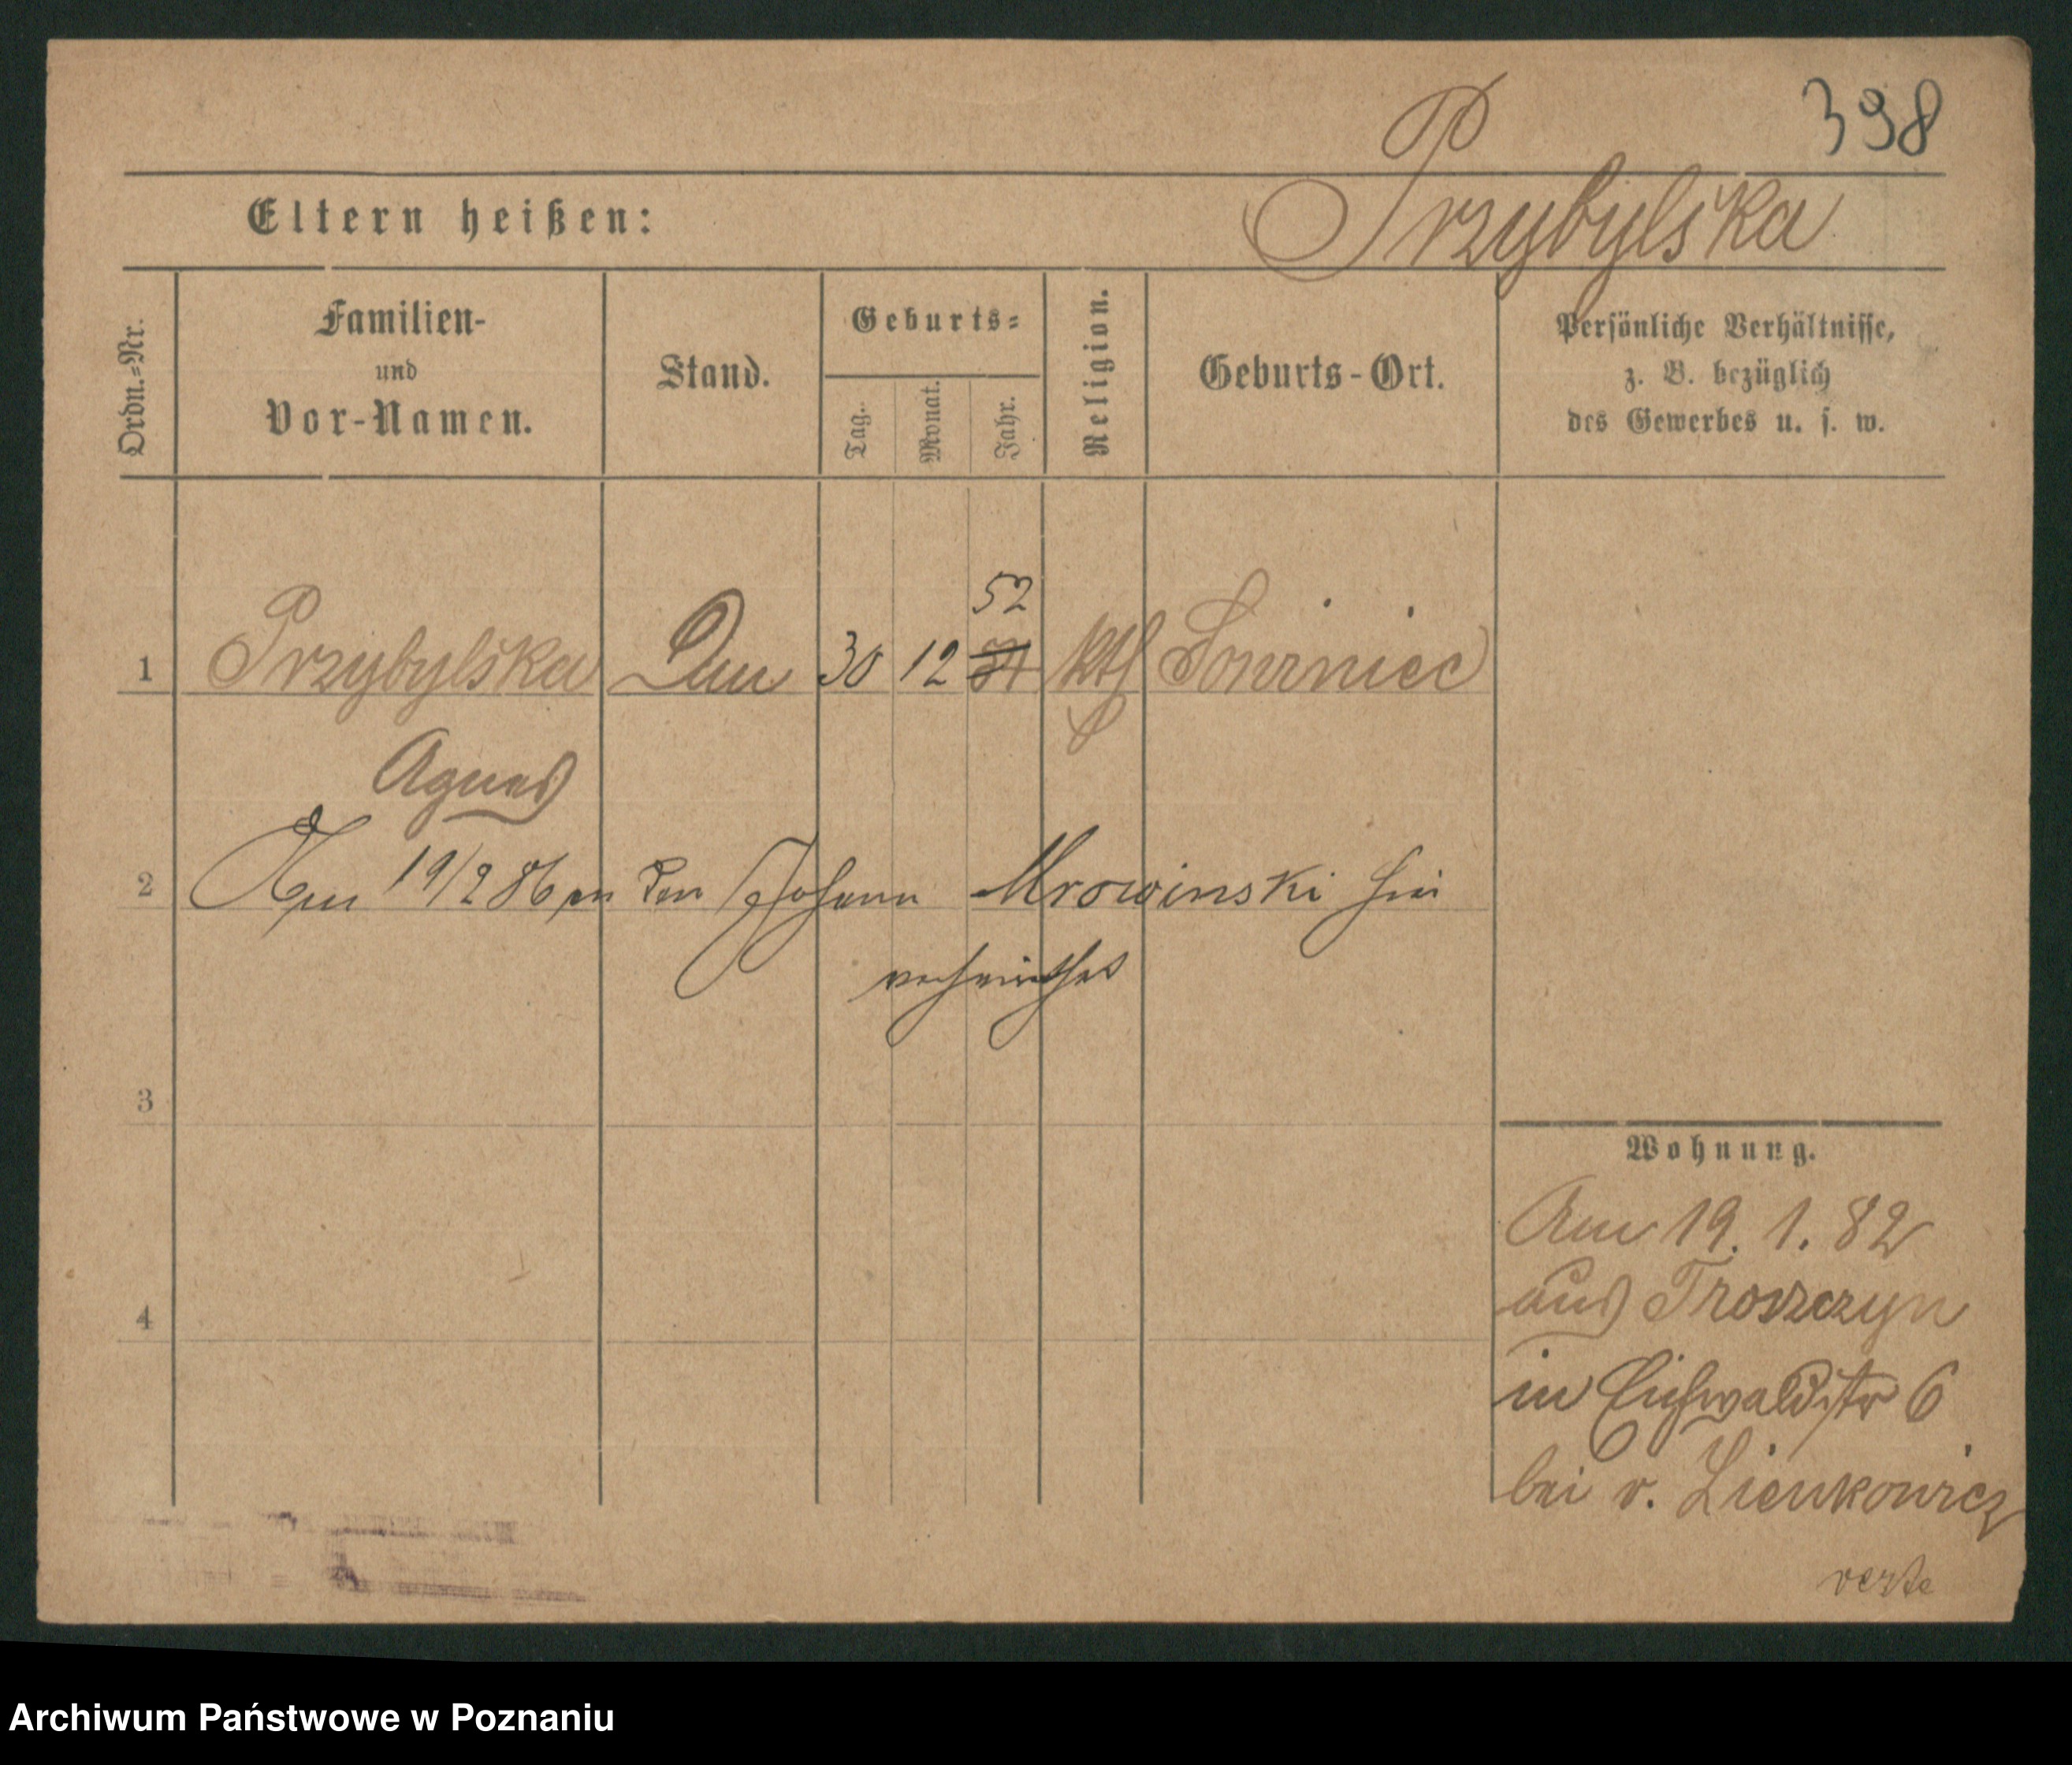 398
Przybylska
Eltern heißen:
Ordn.=Nr.
Familien-
und
Vor-Namen.
Stand.
Geburts=
Tag.
Monat.
Jahr.
Religion.
Geburts-Ort.
Persönliche Verhältnisse,
z. B. bezüglich
des Gewerbes u. s. w.
52
1 Przybylska 30 12 51 kth
Agnes
2 Am 19/2 86 an den Johann Mrowinski hier
verheirathet
3
4
Wohnung.
Am 19. 1. 82
aus Troszczyn
in Eichwaldstr 6
bei v. Lienkowicz
verte
Archiwum Państwowe w Poznaniu